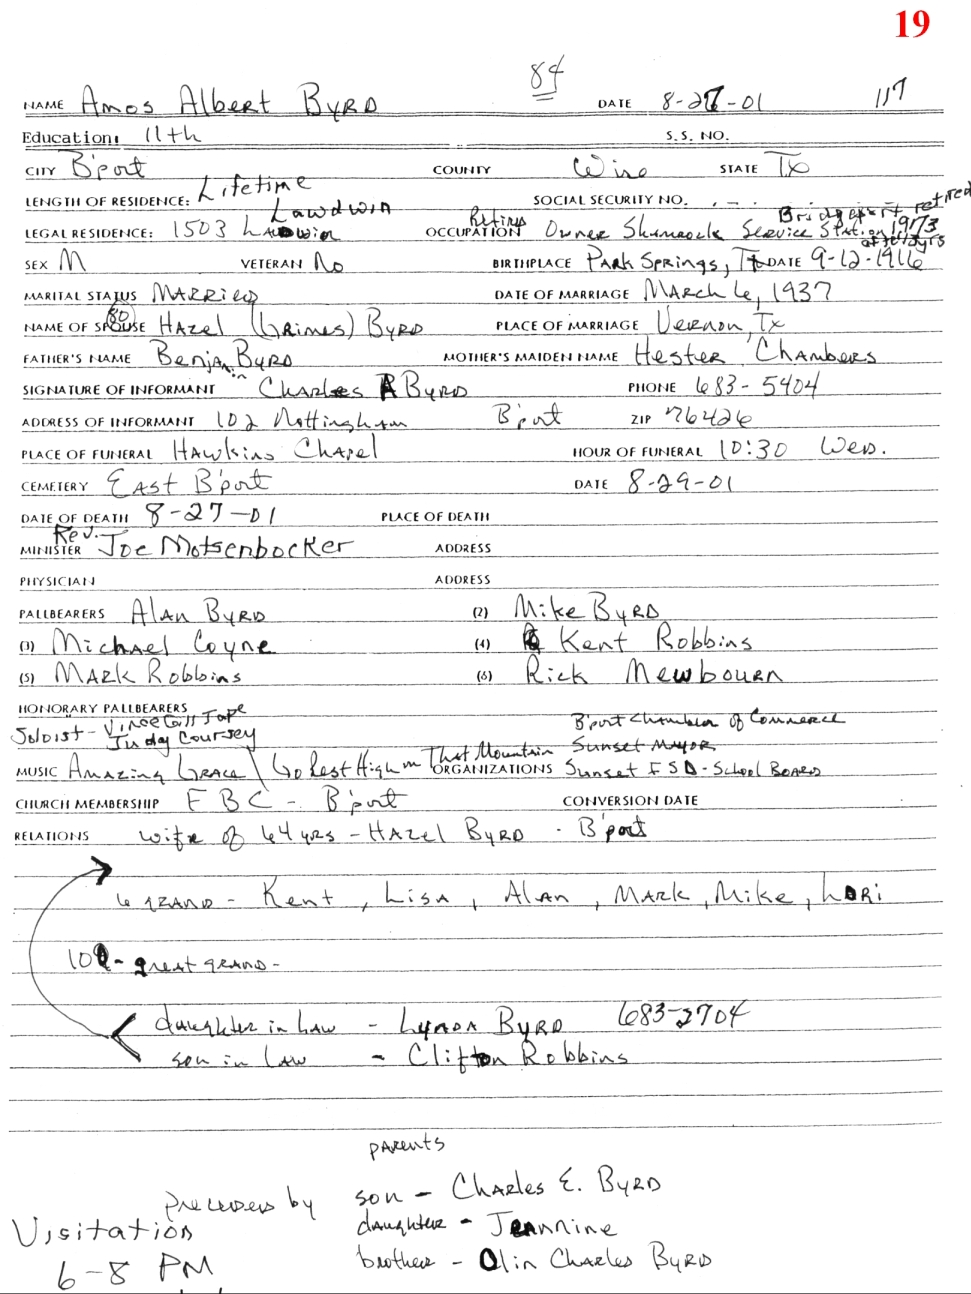 19
84
NAME Amos Albert Byrd DATE 8-27-01 117
Education: 11th S.S. NO.
CITY B'port COUNTY Wise STATE Tx
LENGTH OF RESIDENCE: Lifetime SOCIAL SECURITY NO. . - .
Lawdwin Retired Bridgeport retired
LEGAL RESIDENCE: 1503 OCCUPATION Owner Shamrock Service Station 1973
SEX M VETERAN No BIRTHPLACE Park Springs, Tx DATE 9-12-1916
MARITAL STATUS Married DATE OF MARRIAGE March 6, 1937
80
NAME OF SPOUSE Hazel (Grimes) Byrd PLACE OF MARRIAGE Vernon, Tx
FATHER'S NAME Benjamin Byrd MOTHER'S MAIDEN NAME Hester Chambers
SIGNATURE OF INFORMANT Charles A Byrd PHONE 683-5404
ADDRESS OF INFORMANT 102 Nottingham B'port ZIP 76426
PLACE OF FUNERAL Hawkins Chapel HOUR OF FUNERAL 10:30 Wed.
CEMETERY East B'port DATE 8-29-01
DATE OF DEATH 8-27-01 PLACE OF DEATH
Rev.
MINISTER Joe Motsenbocker ADDRESS
PHYSICIAN ADDRESS
PALLBEARERS Alan Byrd (2) Mike Byrd
(3) Michael Coyne (4) Kent Robbins
(5) Mark Robbins (6) Rick Mewbourn
HONORARY PALLBEARERS
Soloist - Vince Gill Tape B'port Chamber of Commerce
Judy Coursey Sunset Mayor
MUSIC Amazing Grace \ Go Rest High on That Mountain ORGANIZATIONS Sunset ISD - School Board
CHURCH MEMBERSHIP FBC - B'port CONVERSION DATE
RELATIONS wife of 64 yrs - Hazel Byrd - B'port
6 grand - Kent, Lisa, Alan, Mark, Mike, Lori
10 - great grand -
daughter in law - Lynda Byrd 683-2704
son in law - Clifton Robbins
parents
preceded by son - Charles E. Byrd
Visitation daughter - Jeannine
6-8 PM brother - Olin Charles Byrd